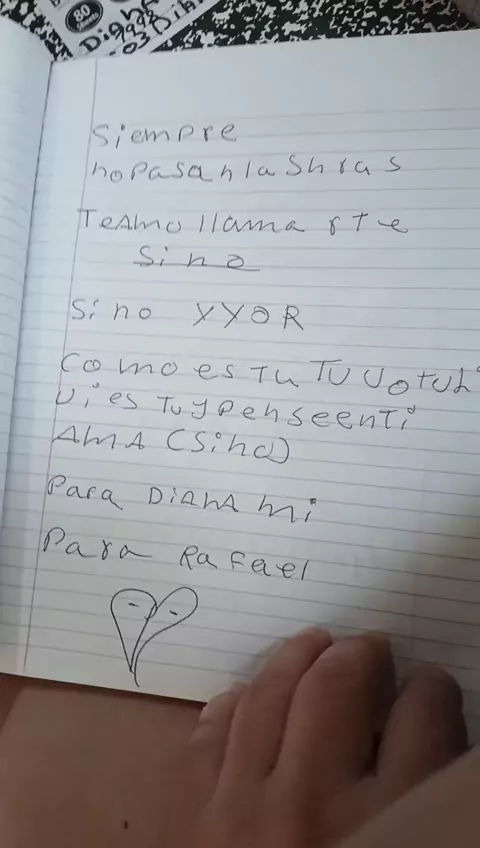 80
Siempre
no Pasan las hras
TeAmo llama rte
Sino
Si no YYOR
como es Tu TU U o tuh
Ui es Tu y penseenTi
AMA (Sino)
Para DiANA mi
Para Rafael